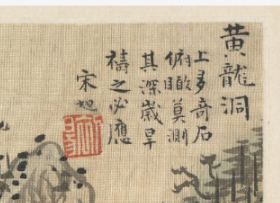 黄龍洞
上多奇石
俯瞰莫測
其深歲旱
禱之必應
宋旭